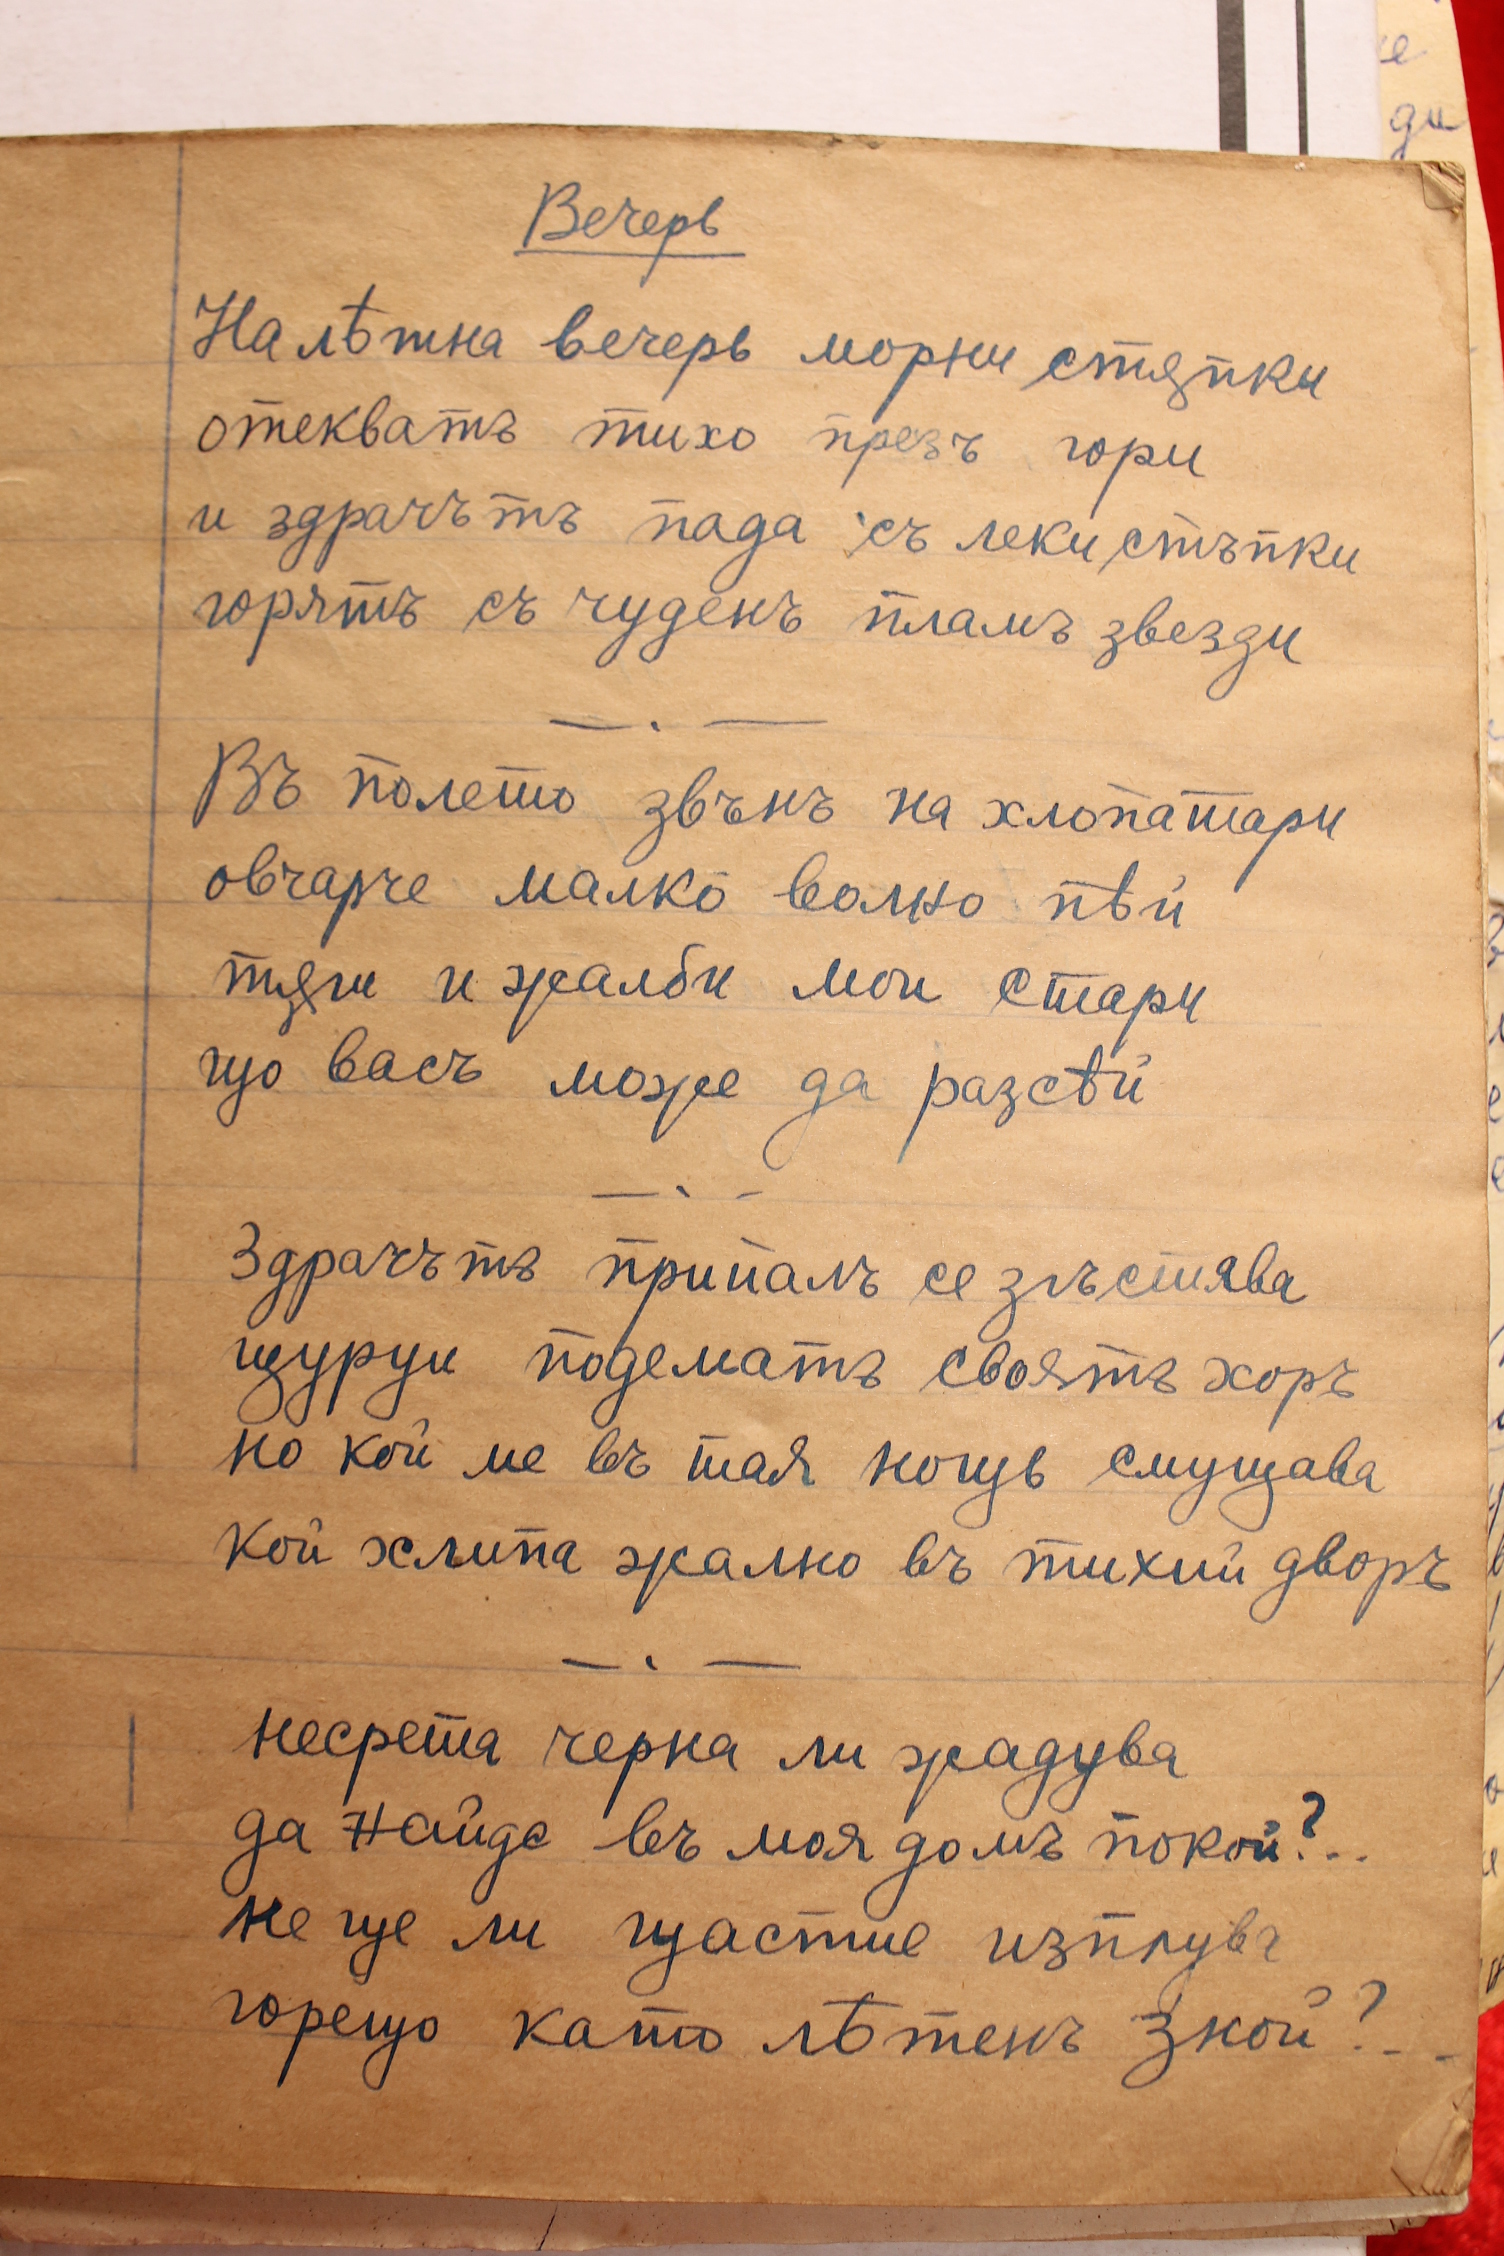 Вечерь
На лѣтна вечерь морни стѫпки
отекватъ тихо презъ гори
и здрачътъ пада съ леки стъпки
горятъ съ чуденъ пламъ звезди
— . —
Въ полето звънъ на хлопатари
овчарче малко волно пѣй
тѫги и жалби мои стари
що васъ може да разсѣй
— . —
Здрачътъ припалъ се згъстява
щурци подематъ своятъ хоръ
но кой ме въ тая нощь смущава
кой хлипа жално въ тихий дворъ
— . —
несрета черна ли жадува
да найде въ моя домъ покой?..
не ще ли щастие изплува
горещо като лѣтенъ зной?..